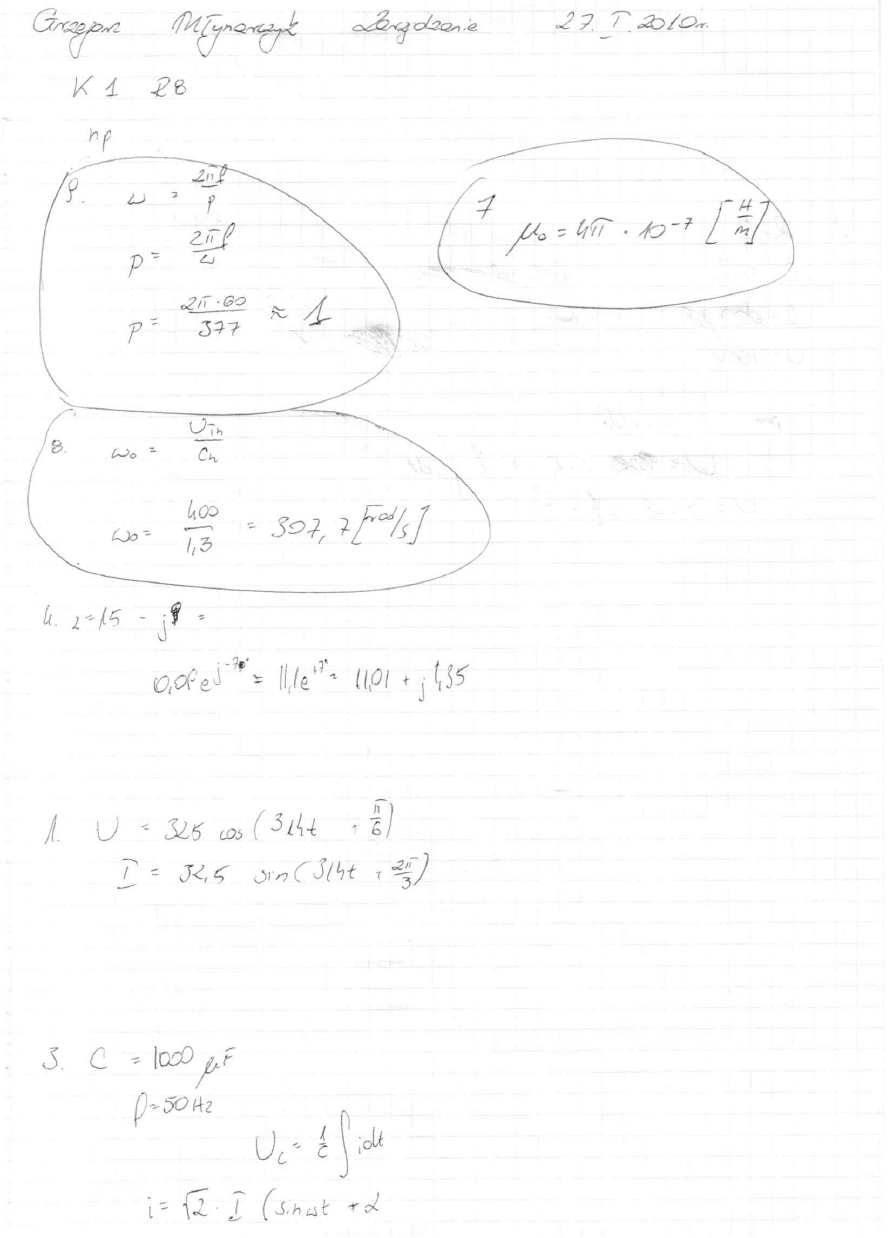 Grzegorz Młynarczyk Zarządzanie 27. I. 2010r.
K 1 28
np
9. ω = 2πf/p
p = 2πf/ω
p = 2π·60/377 ≈ 1
7 μ₀ = 4π · 10⁻⁷ [H/m]
8. ω₀ =
ω₀ = 400/1,3 = 307,7 [rad/s]
4. z = 15 - j =
= 11,1e = 11,01 + j1,35
1. U = 325 cos (314t + π/6)
I = 32,5 sin (314t + 2π/3)
3. C = 1000 μF
f = 50 Hz
U_c = 1/C ∫ i dt
i = √2 · I (sin ωt + α